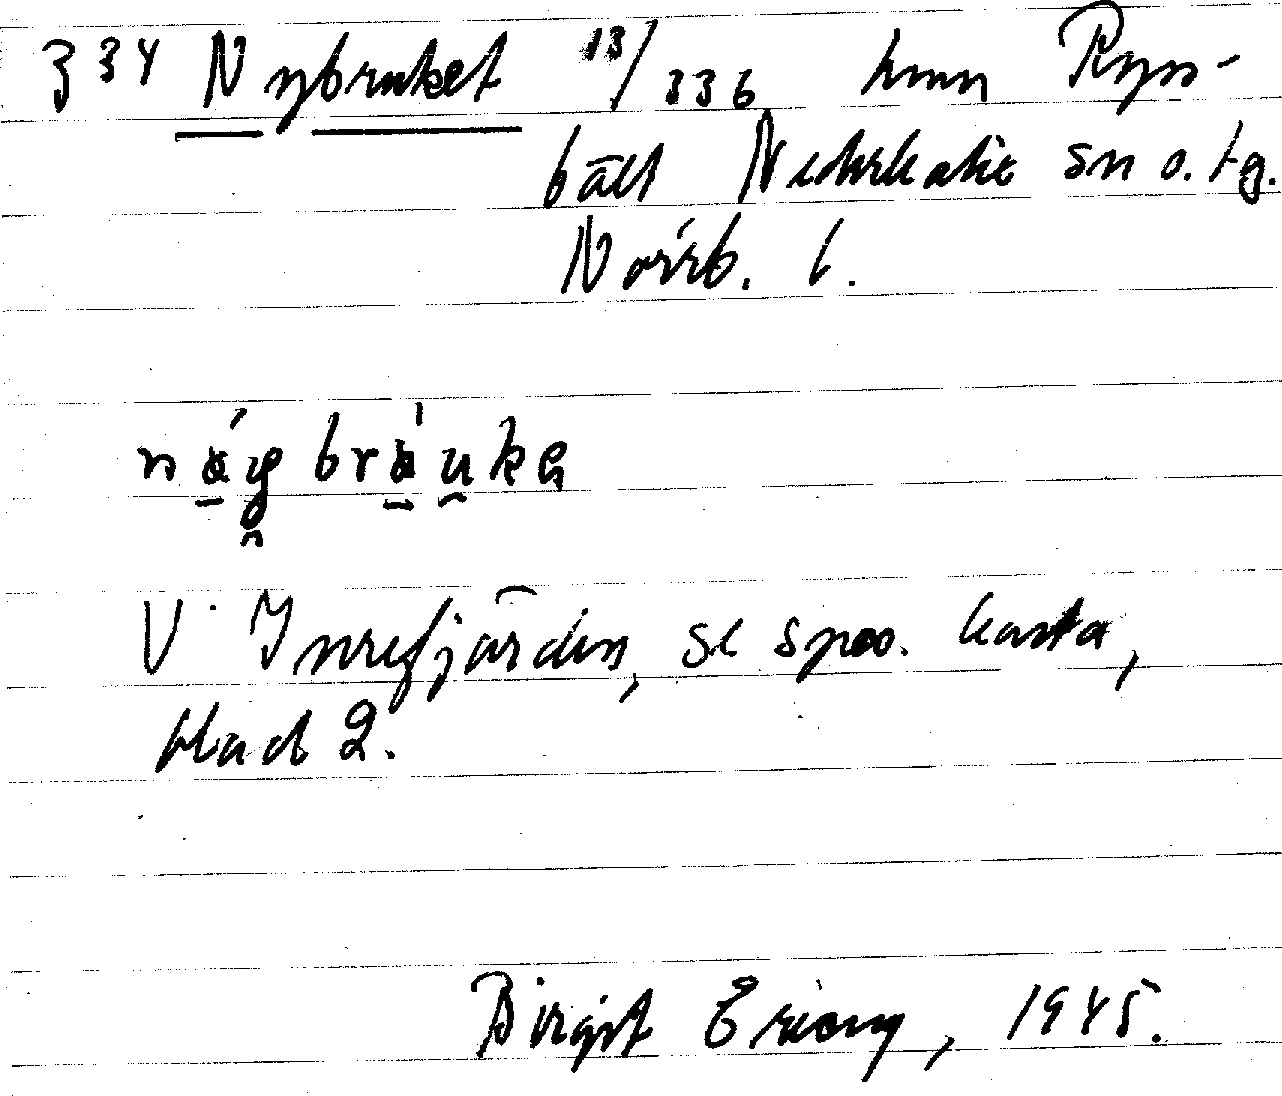 334 Nybruket 13/336 hmn Ryss-
bält Nederkalix sn o. tg.
Norrb. l.
V Inrefjärden, se spec. karta,
blad 2.
Birgit Eriang, 1945.